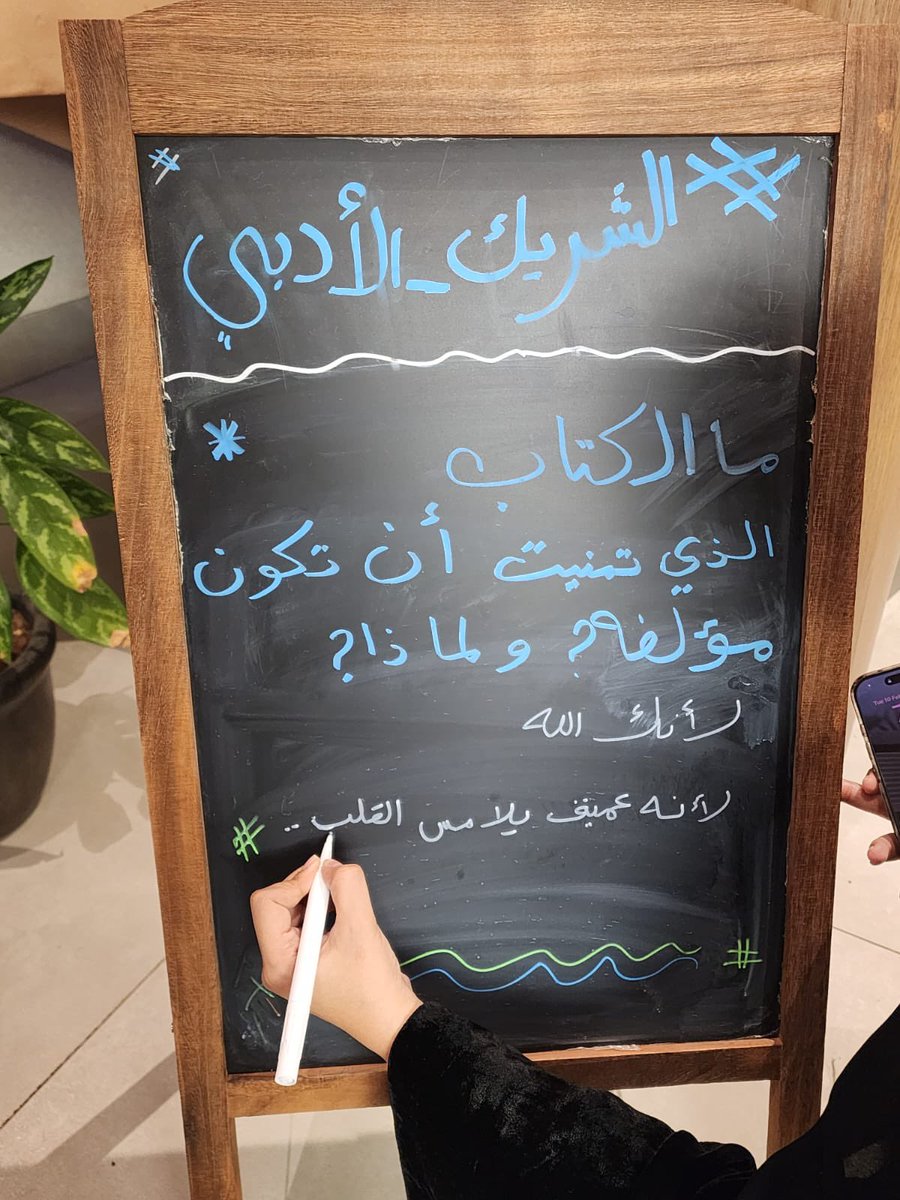 #الشريك_الأدبي
ما الكتاب
الذي تمنيت أن تكون
مؤلفه? ولماذا?
لأنك الله
لأنه عميق يلامس القلب ..
Tue 10 Feb